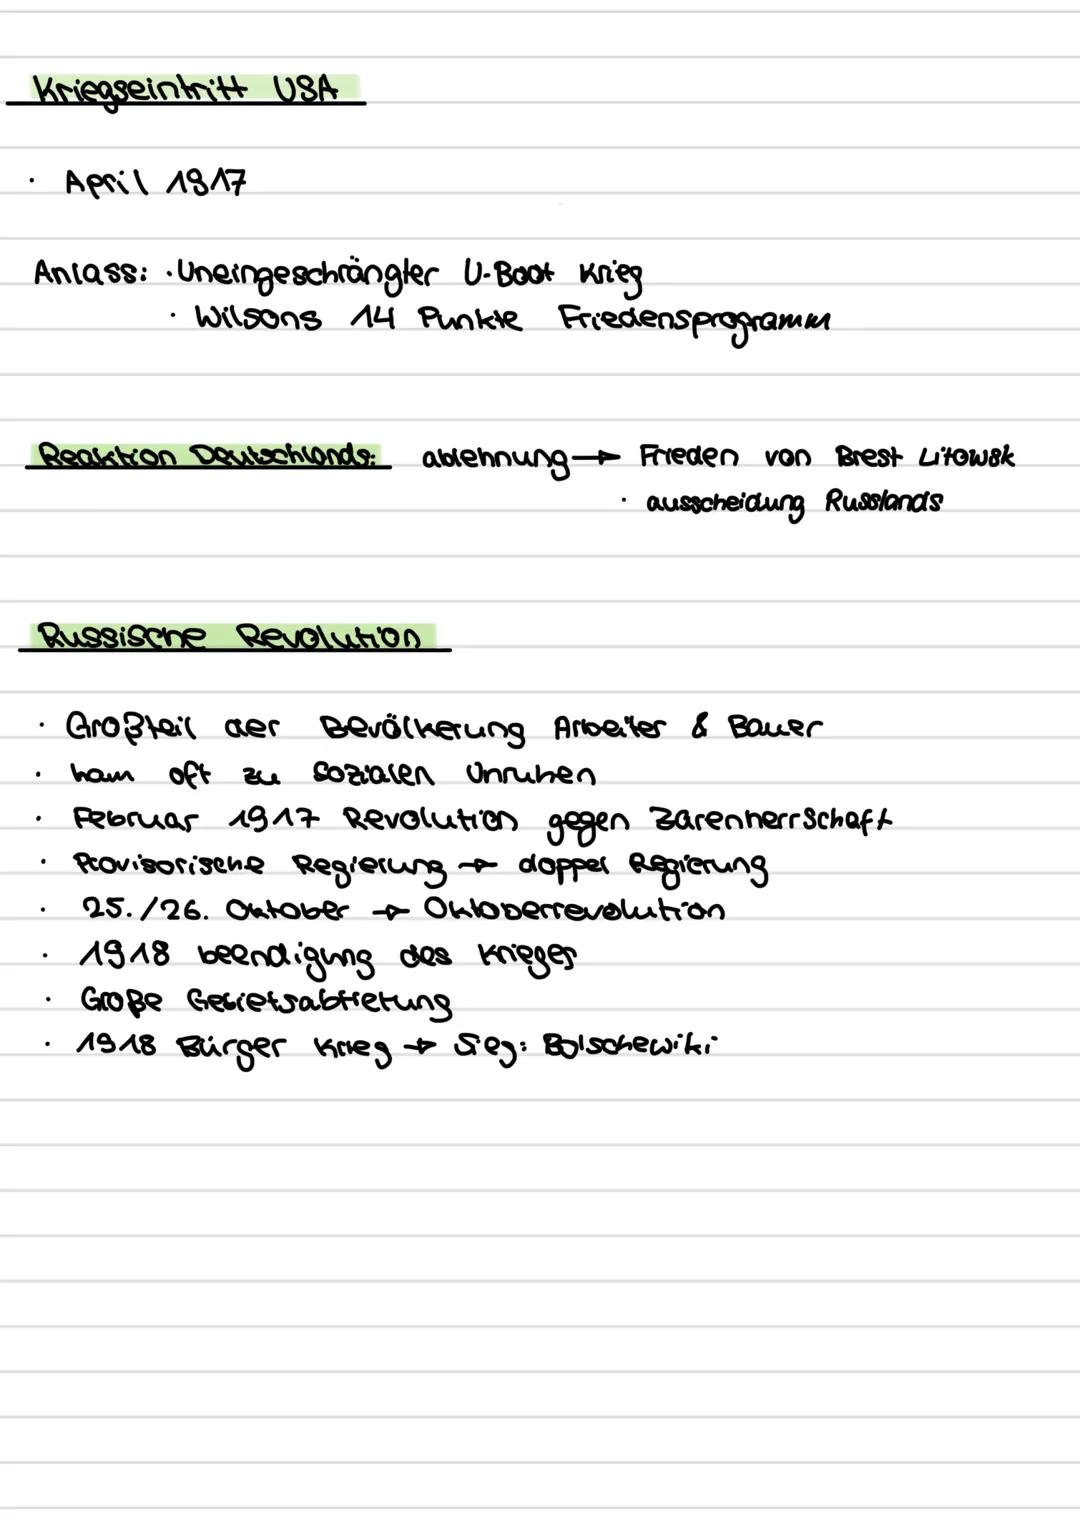 Kriegseintritt USA
· April 1917
Anlass: · Uneingeschrängter U-Boot Krieg
· Wilsons 14 Punkte Friedensprogramm
Reaktion Deutschlands: ablehnung → Frieden von Brest Litowsk
· ausscheidung Russlands
Russische Revolution
· Großteil der Bevölkerung Arbeiter & Bauer
· kam oft zu Sozialen Unruhen
· Februar 1917 Revolution gegen Zarenherrschaft
· Provisorische Regierung → doppel Regierung
· 25./26. Oktober → Oktoberrevolution
· 1918 beendigung des Krieges
· Große Gebietsabtretung
· 1918 Bürger Krieg → Sieg: Bolschewiki